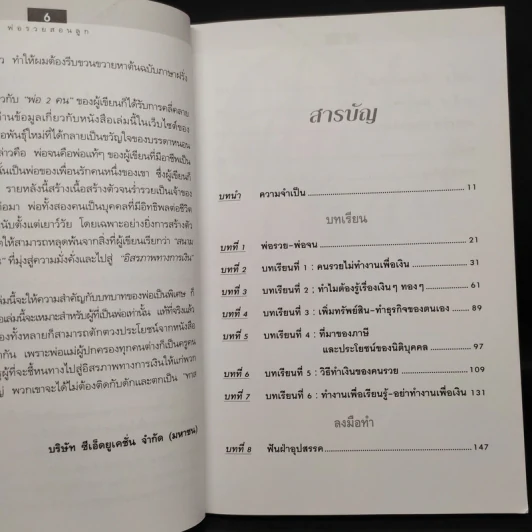 6
พ่อรวยสอนลูก
ทำให้ผมต้องรีบขวนขวายหาต้นฉบับภาษาฝรั่ง
กับ "พ่อ 2 คน" ของผู้เขียนก็ได้รับการคลี่คลาย
านข้อมูลเกี่ยวกับหนังสือเล่มนี้ในเว็บไซต์ของ
อพันธุ์ใหม่ที่ได้กลายเป็นขวัญใจของบรรดาหนอน
ล่าวคือ พ่อจนคือพ่อแท้ๆ ของผู้เขียนที่มีอาชีพเป็น
นั้นเป็นพ่อของเพื่อนรักคนหนึ่งของเขา ซึ่งผู้เขียนก็
รายหลังนี้สร้างเนื้อสร้างตัวจนร่ำรวยเป็นเจ้าของ
ต่อมา พ่อทั้งสองคนเป็นบุคคลที่มีอิทธิพลต่อชีวิต
นับตั้งแต่เยาว์วัย โดยเฉพาะอย่างยิ่งการสร้างตัว
ให้สามารถหลุดพ้นจากสิ่งที่ผู้เขียนเรียกว่า "สนาม
" ที่มุ่งสู่ความมั่งคั่งและไปสู่ "อิสรภาพทางการเงิน"
ล่มนี้จะให้ความสำคัญกับบทบาทของพ่อเป็นพิเศษ ก็
อเล่มนี้จะเหมาะสำหรับผู้ที่เป็นพ่อเท่านั้น แท้ที่จริงแล้ว
องทั้งหลายก็สามารถตักตวงประโยชน์จากหนังสือ
กัน เพราะพ่อแม่ผู้ปกครองทุกคนต่างก็เป็นครูคน
ผู้ที่จะชี้หนทางไปสู่อิสรภาพทางการเงินให้แก่พวก
ญ่ พวกเขาจะได้ไม่ต้องติดกับดักและตกเป็น "ทาส
บริษัท ซีเอ็ดยูเคชั่น จำกัด (มหาชน)
สารบัญ
บทนำ ความจำเป็น 11
บทเรียน
บทที่ 1 พ่อรวย-พ่อจน 21
บทที่ 2 บทเรียนที่ 1 : คนรวยไม่ทำงานเพื่อเงิน 31
บทที่ 3 บทเรียนที่ 2 : ทำไมต้องรู้เรื่องเงินๆ ทองๆ 61
บทที่ 4 บทเรียนที่ 3 : เพิ่มทรัพย์สิน-ทำธุรกิจของตนเอง 89
บทที่ 5 บทเรียนที่ 4 : ที่มาของภาษี
และประโยชน์ของนิติบุคคล 97
บทที่ 6 บทเรียนที่ 5 : วิธีทำเงินของคนรวย 109
บทที่ 7 บทเรียนที่ 6 : ทำงานเพื่อเรียนรู้-อย่าทำงานเพื่อเงิน 131
ลงมือทำ
บทที่ 8 ฟันฝ่าอุปสรรค 147